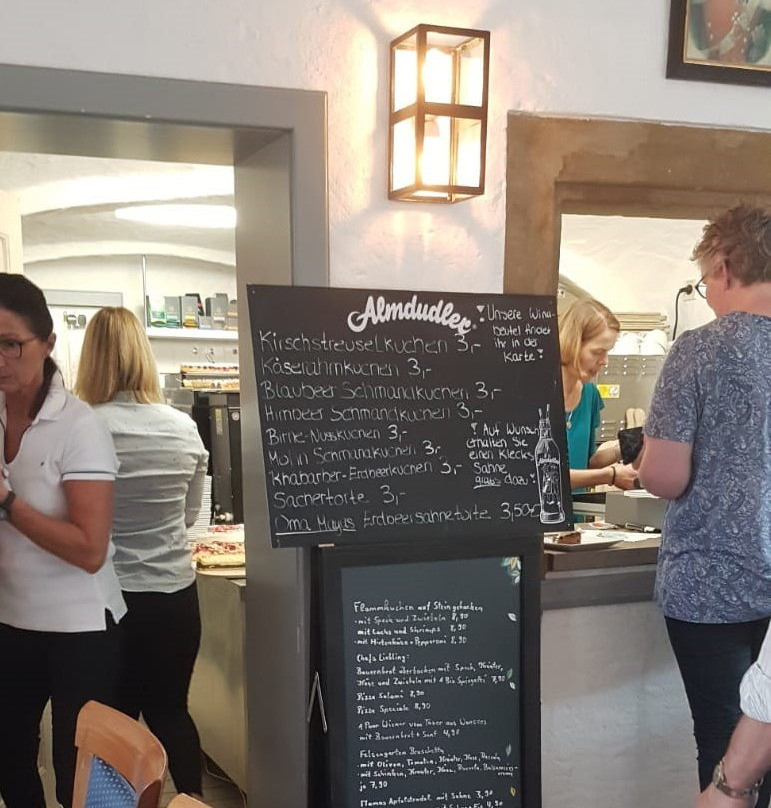 Almdudler
Kirschstreuselkuchen 3,-
Käserahmkuchen 3,-
Blaubeer Schmandkuchen 3,-
Himbeer Schmandkuchen 3,-
Birne-Nusskuchen 3,-
Schmandkuchen 3,-
Rhabarber-Erdbeerkuchen 3,-
Sachertorte 3,-
Oma Erdbeersahnetorte 3,50
! Unsere Wind-
beutel findet
ihr in der
Karte !
! Auf Wunsch
erhalten Sie
einen Klecks
Sahne
dazu !
Flammkuchen auf Stein gebacken
- mit Speck und Zwiebeln 8,90
- mit Lachs und Shrimps 8,90
- mit Hirtenkäse + Pepperoni 8,90
Chefs Liebling:
Bauernbrot überbacken mit Speck, Kräuter,
Käse und Zwiebeln mit 2 Bio Spiegelei 7,90
Pizza Salami 8,90
Pizza Speciale 8,90
1 Paar Wiener vom
mit Bauernbrot + Senf 4,90
Felsengarten Bruschetta
- mit Oliven, Tomaten, Kräuter, Käse,
- mit Schinken, Kräuter, Käse, Rucola,
je 7,90
Mamas Apfelstrudel mit Sahne 3,90
4,90